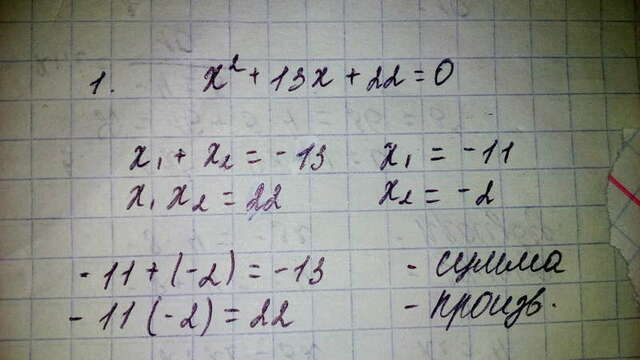 1. x² + 13x + 22 = 0
x₁ + x₂ = -13 x₁ = -11
x₁ x₂ = 22 x₂ = -2
-11 + (-2) = -13 - сумма
-11 (-2) = 22 - произв.